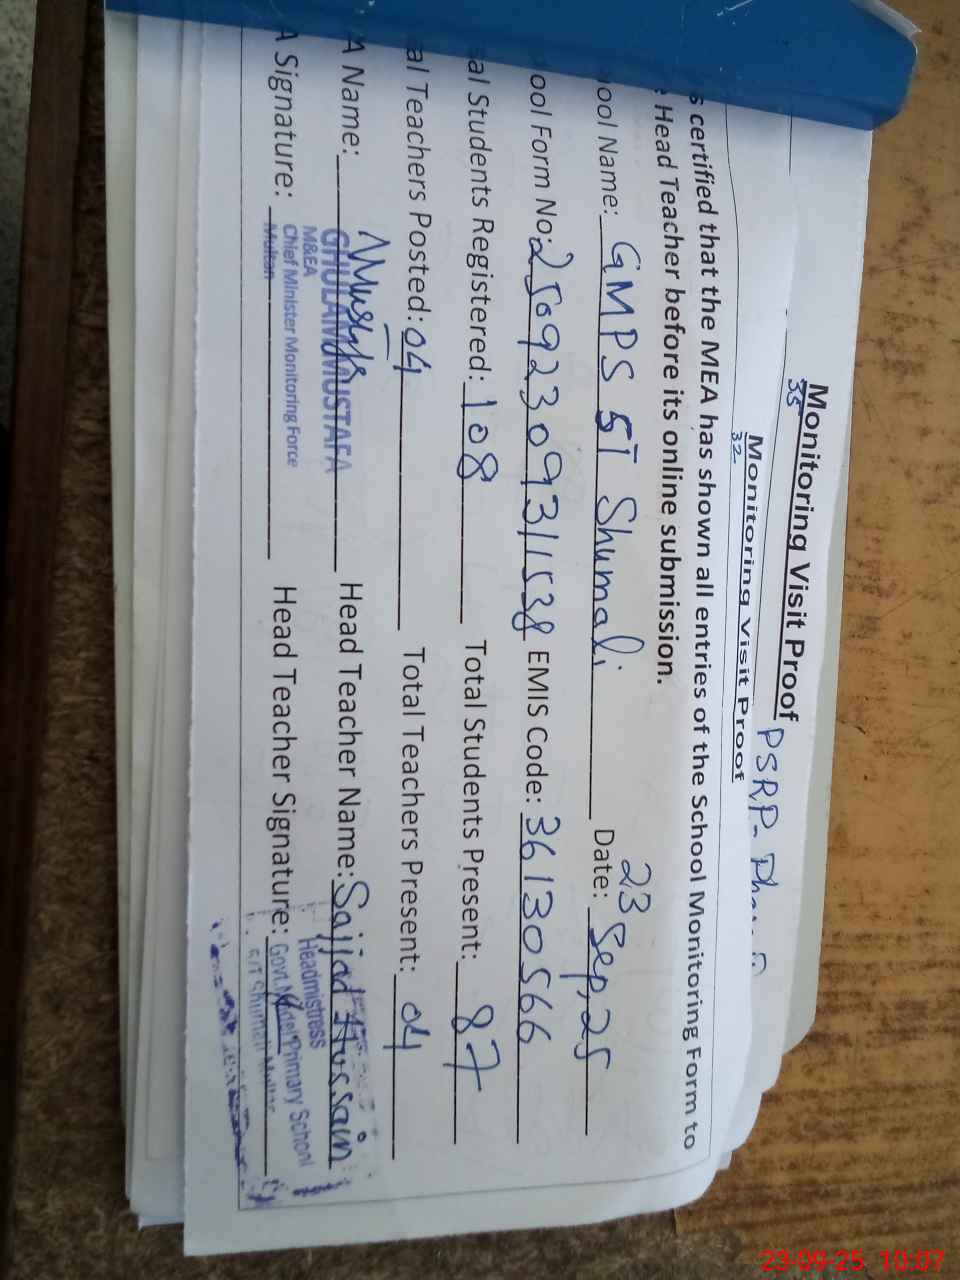 Monitoring Visit Proof
35
PSRP-
Monitoring Visit Proof
32
s certified that the MEA has shown all entries of the School Monitoring Form to
Head Teacher before its online submission.
ool Name: GMPS 5T Shumali Date: 23 Sep, 25
ool Form No: 25092309311538 EMIS Code: 36130566
al Students Registered: 108 Total Students Present: 87
al Teachers Posted: 04 Total Teachers Present: 04
A Name: GHULAM MUSTAFA Head Teacher Name: Sajjad Hussain
M&EA
Headmistress
A Signature: Chief Minister Monitoring Force Head Teacher Signature: Govt. Model Primary School
Multan
23-09-25 10:07